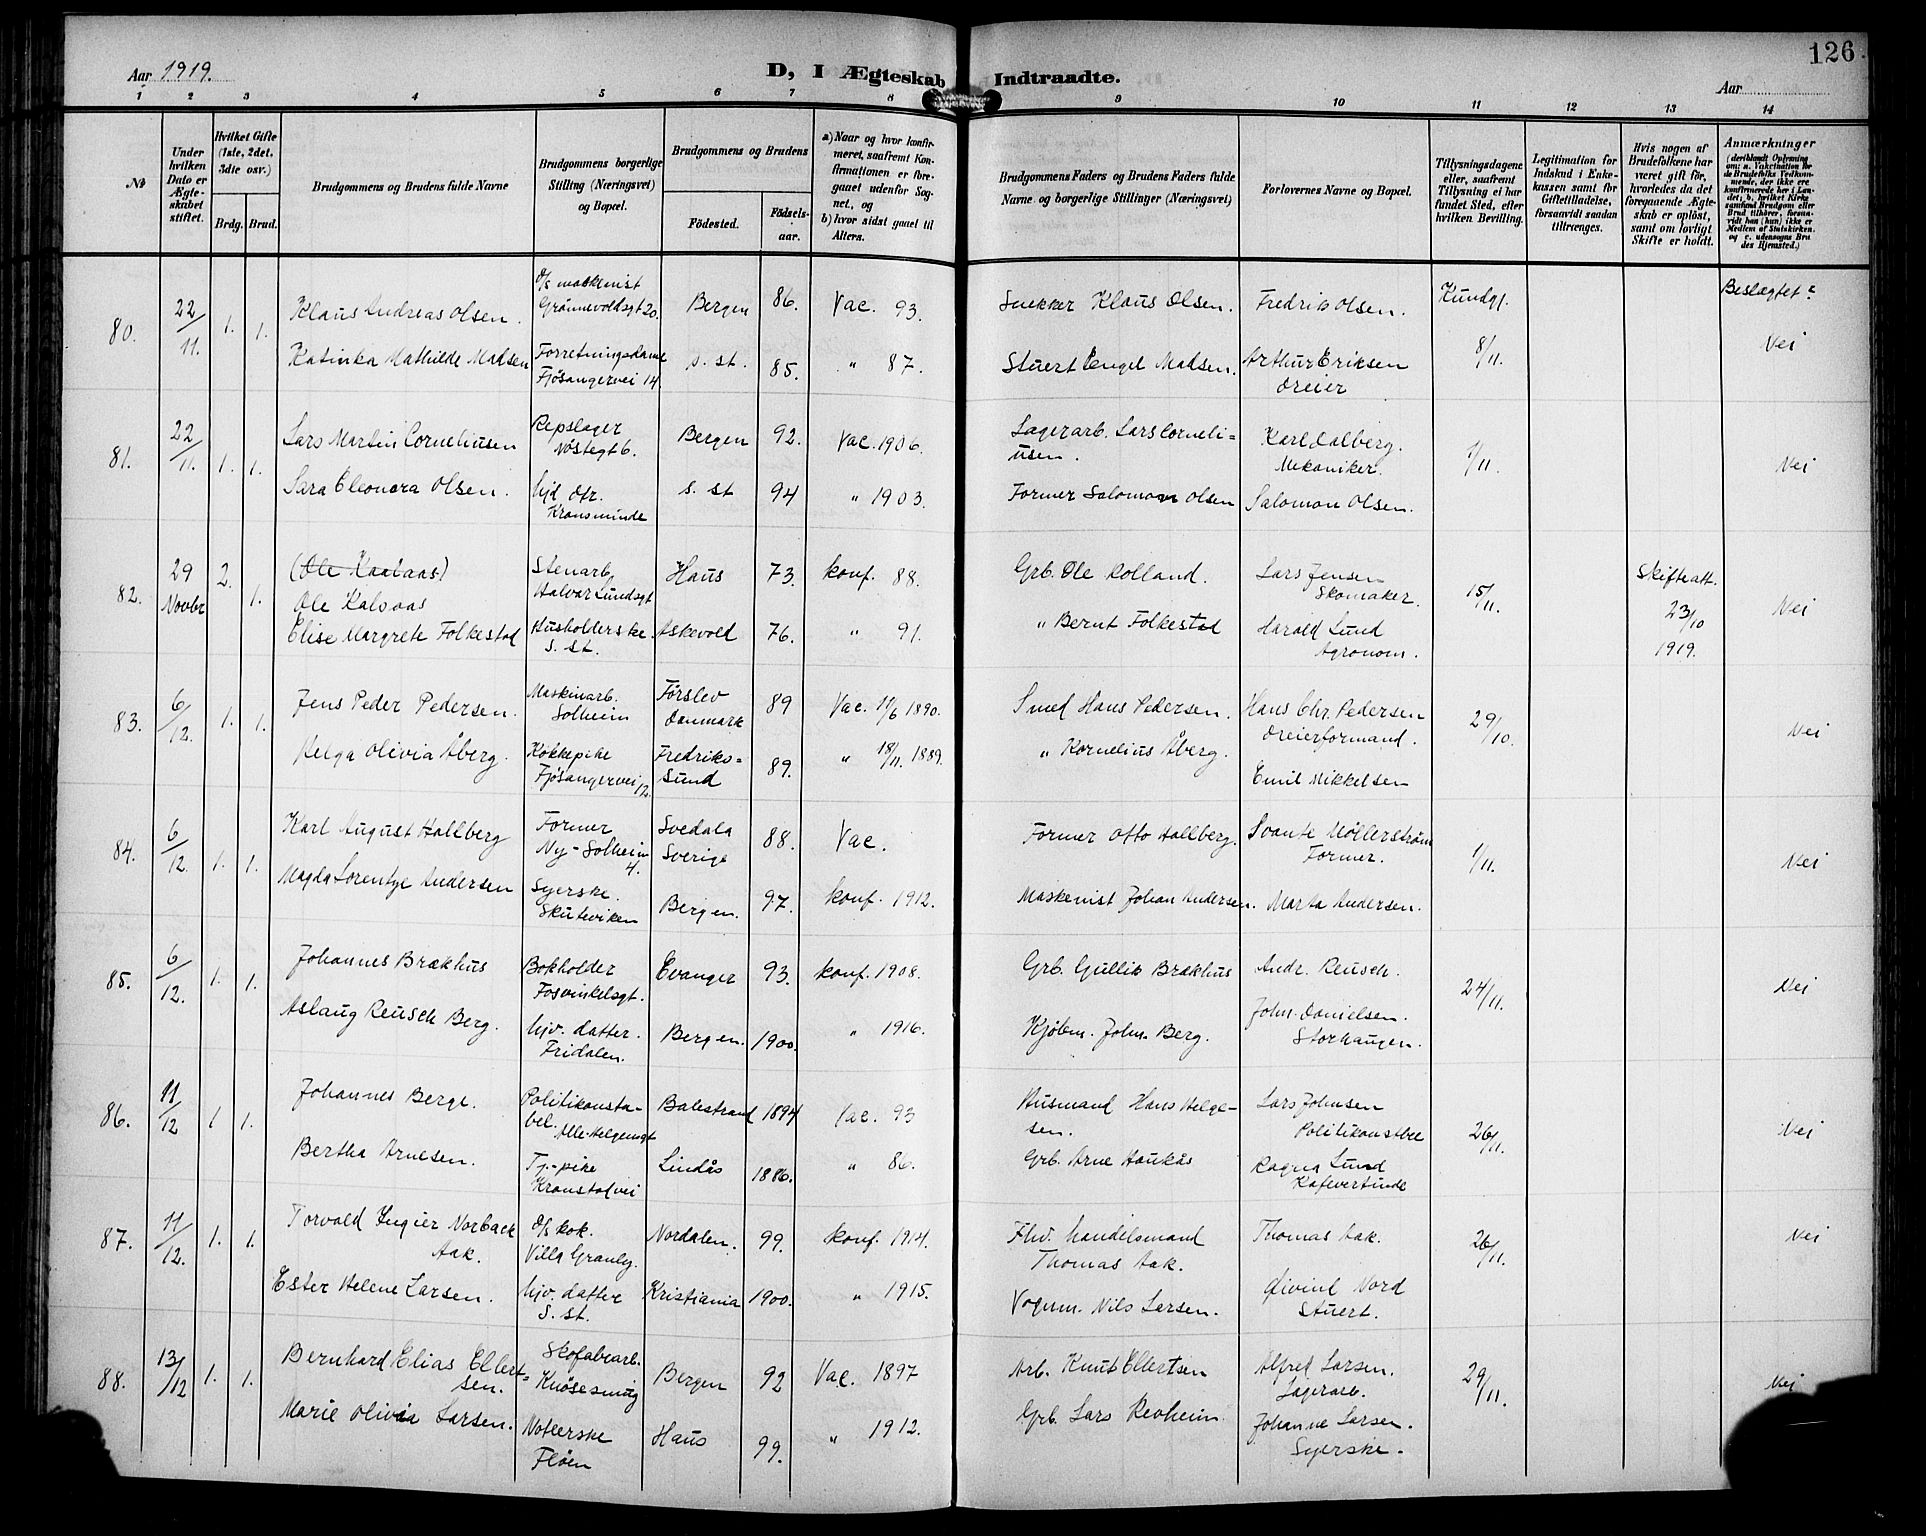 126
Aar 1919.
D, I Ægteskab Indtraadte.
Aar
1 2 3 4 5 6 7 8 9 10 11 12 13 14
No
Under hvilken Dato er Ægteskabet stiftet.
Hvilket Gifte (1ste, 2det, 3die osv.)
Brdg. Brud.
Brudgommens og Brudens fulde Navne
Brudgommens borgerlige Stilling (Næringsvei) og Bopæl.
Brudgommens og Brudens
Fødested.
Fødsels-aar.
a) Naar og hvor konfirmeret, saafremt Konfirmationen er foregaaet udenfor Sognet, og
b) hvor sidst gaaet til Alters.
Brudgommens Faders og Brudens Faders fulde Navne og borgerlige Stillinger (Næringsvei)
Forlovernes Navne og Bopæl.
Tillysningsdagene eller, saafremt Tillysning ei har fundet Sted, efter hvilken Bevilling.
Legitimation for Indskud i Enkekassen samt for Giftetilladelse, forsaavidt saadan tiltrænges.
Hvis nogen af Brudefolkene har været gift før, hvorledes da det foregaaende Ægteskab er opløst, samt om lovligt Skifte er holdt.
Anmærkninger
(deriblandt Oplysning om: a. Vakcination for de Brudefolks Vedkommende, der ikke ere konfirmerede her i Landet; b. hvilket Kirkesamfund Brudgom eller Brud tilhører, forsaavidt han (hun) ikke er Medlem af Statskirken. og c. udensogns Brudes Hjemsted.)
80. 22/11. 1. 1. Klaus Andreas Olsen. D/s maskinist Grønnevoldsgt 20. Bergen 86. Vac. 93. Snekker Klaus Olsen. Fredrik Olsen. Kundgj. 8/11. Beslægtet? Nei
Katinka Mathilde Madsen Forretningsdame Fjøsangervei 14. s. st. 85. " 87. Stuert Engel Madsen. Arthur Eriksen dreier
81. 22/11. 1. 1. Lars Martin Corneliusen Repslager Nøstegt 6. Bergen 92. Vac. 1906. Lagerarb. Lars Corneli=usen. Karl Dalberg. Mekaniker. 1/11. Nei
Sara Eleonora Olsen. hjd dtr. Kransminde s. st 94 " 1903. Former Salomon Olsen Salomon Olsen.
82. 29 Novbr 2. 1. (Ole Kaalaas)
Ole Kalsaas Stenarb. Halvar Lundsgt Haus 73. konf. 88. Grb. Ole Rolland. Lars Jensen Skomaker. 15/11. Skifteatt. 23/10 1919. Nei
Elise Margrete Folkestad Husholderske s. st. Askevold 76. " 91. " Bernt Folkestad Harald Lund Agronom.
83. 6/12. 1. 1. Jens Peder Pedersen. Maskinarb. Solheim Førslev Danmark 89 Vac. 11/6 1890. Smed Hans Pedersen. Hans Chr. Pedersen Dreierformand. 29/10. Nei
Helga Olivia Åberg. Kokkepike Fjøsangervei 12. Fredriks=sund 89. " 18/11. 1889. " Kornelius Åberg. Emil Mikkelsen
84. 6/12. 1. 1. Karl August Hallberg Former Ny-Solheim 4. Svedala Sverige 88. Vac. Former Otto Hallberg. Svante Möllerstrøm Former. 1/11. Nei
Magda Lorentze Andersen Syerske. Skuteviken Bergen. 97. konf. 1912. Maskinist Johan Andersen. Marta Andersen.
85. 6/12. 1. 1. Johannes Brækhus Bokholder Fosvinkelsgt. Evanger 93. konf. 1908. Grb. Gullik Brækhus Andr. Reusch. 24/11. Nei
Aslaug Reusch Berg. hjv. datter. Fridalen. Bergen. 1900. " 1916. Kjøbm. Johs. Berg. Johs. Danielsen. Storhaugen.
86. 11/12 1 1. Johannes Berge. Politikonsta-bel. Alle Helgensgt Balestrand 1894 Vac. 93 Husmand Hans Helge-sen. Lars Johnsen Politikonstbel 26/11. Nei
Bertha Arnesen. Tj.-pike Kronstadvei Lindås 1886. " 86. Grb. Arne Haukås Ragna Lund Kafevertinde
87. 11/12. 1. 1. Torvald Ingier Norback Aak. D/s kok. Villa Granly. Nordalen. 99. konf. 1914. Fhv. handelsmand Thomas Aak. Thomas Aak. 26/11. Nei
Ester Helene Larsen. hjv. datter s. st. Kristiania 1900. " 1915. Vognm. Nils Larsen. Øivind Nord Stuert.
88. 13/12 1. 1. Bernhard Elias Ellert=sen. Skofabrarb. Knøsesmug Bergen 92 Vac. 1897 Arb. Knut Ellertsen Alfred Larsen. Lagerarb. 29/11. Nei
Marie Olivia Larsen. Noteerske Fløen Haus 99. " 1912. Grb. Lars Revheim. Johanne Larsen. Syerske.